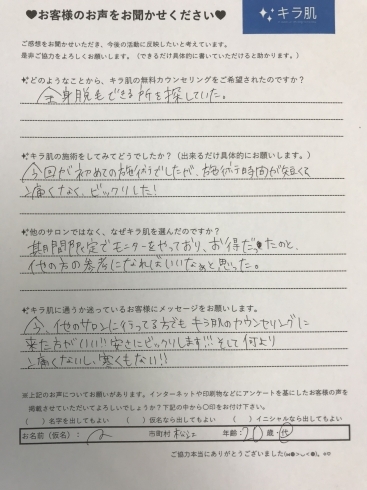 ♥お客様のお声をお聞かせください♥
キラ肌
ご感想をお聞かせいただき、今後の活動に反映したいと考えています。
是非ご協力をよろしくお願いします。（できるだけ具体的に書いていただけると助かります。）
どのようなことから、キラ肌の無料カウンセリングをご希望されたのですか？
全身脱毛できる所を探していた。
キラ肌の施術をしてみてどうでしたか？（出来るだけ具体的にお願いします。）
今回が初めての施術でしたが、施術時間が短くて
痛くなく、ビックリした！
他のサロンではなく、なぜキラ肌を選んだのですか？
期間限定でモニターをやっており、お得だったのと、
他の方の参考になればいいなぁと思った。
キラ肌に通うか迷っているお客様にメッセージをお願いします。
今、他のサロンに行ってる方でもキラ肌のカウンセリングに
来た方がいい!!安さにビックリします!!!そして何より
痛くないし、寒くもない!!
※上記のお声についてお願いがあります。インターネットや印刷物などにアンケートを基にしたお客様の声を
掲載させていただいてよろしいでしょうか？下記の中から〇印をお付け下さい。
（　）名字を出してもよい　（　）仮名なら出してもよい　（　）イニシャルなら出してもよい
お名前（仮名）： 市町村 松江 年齢：20歳・
ご協力本当にありがとうございました